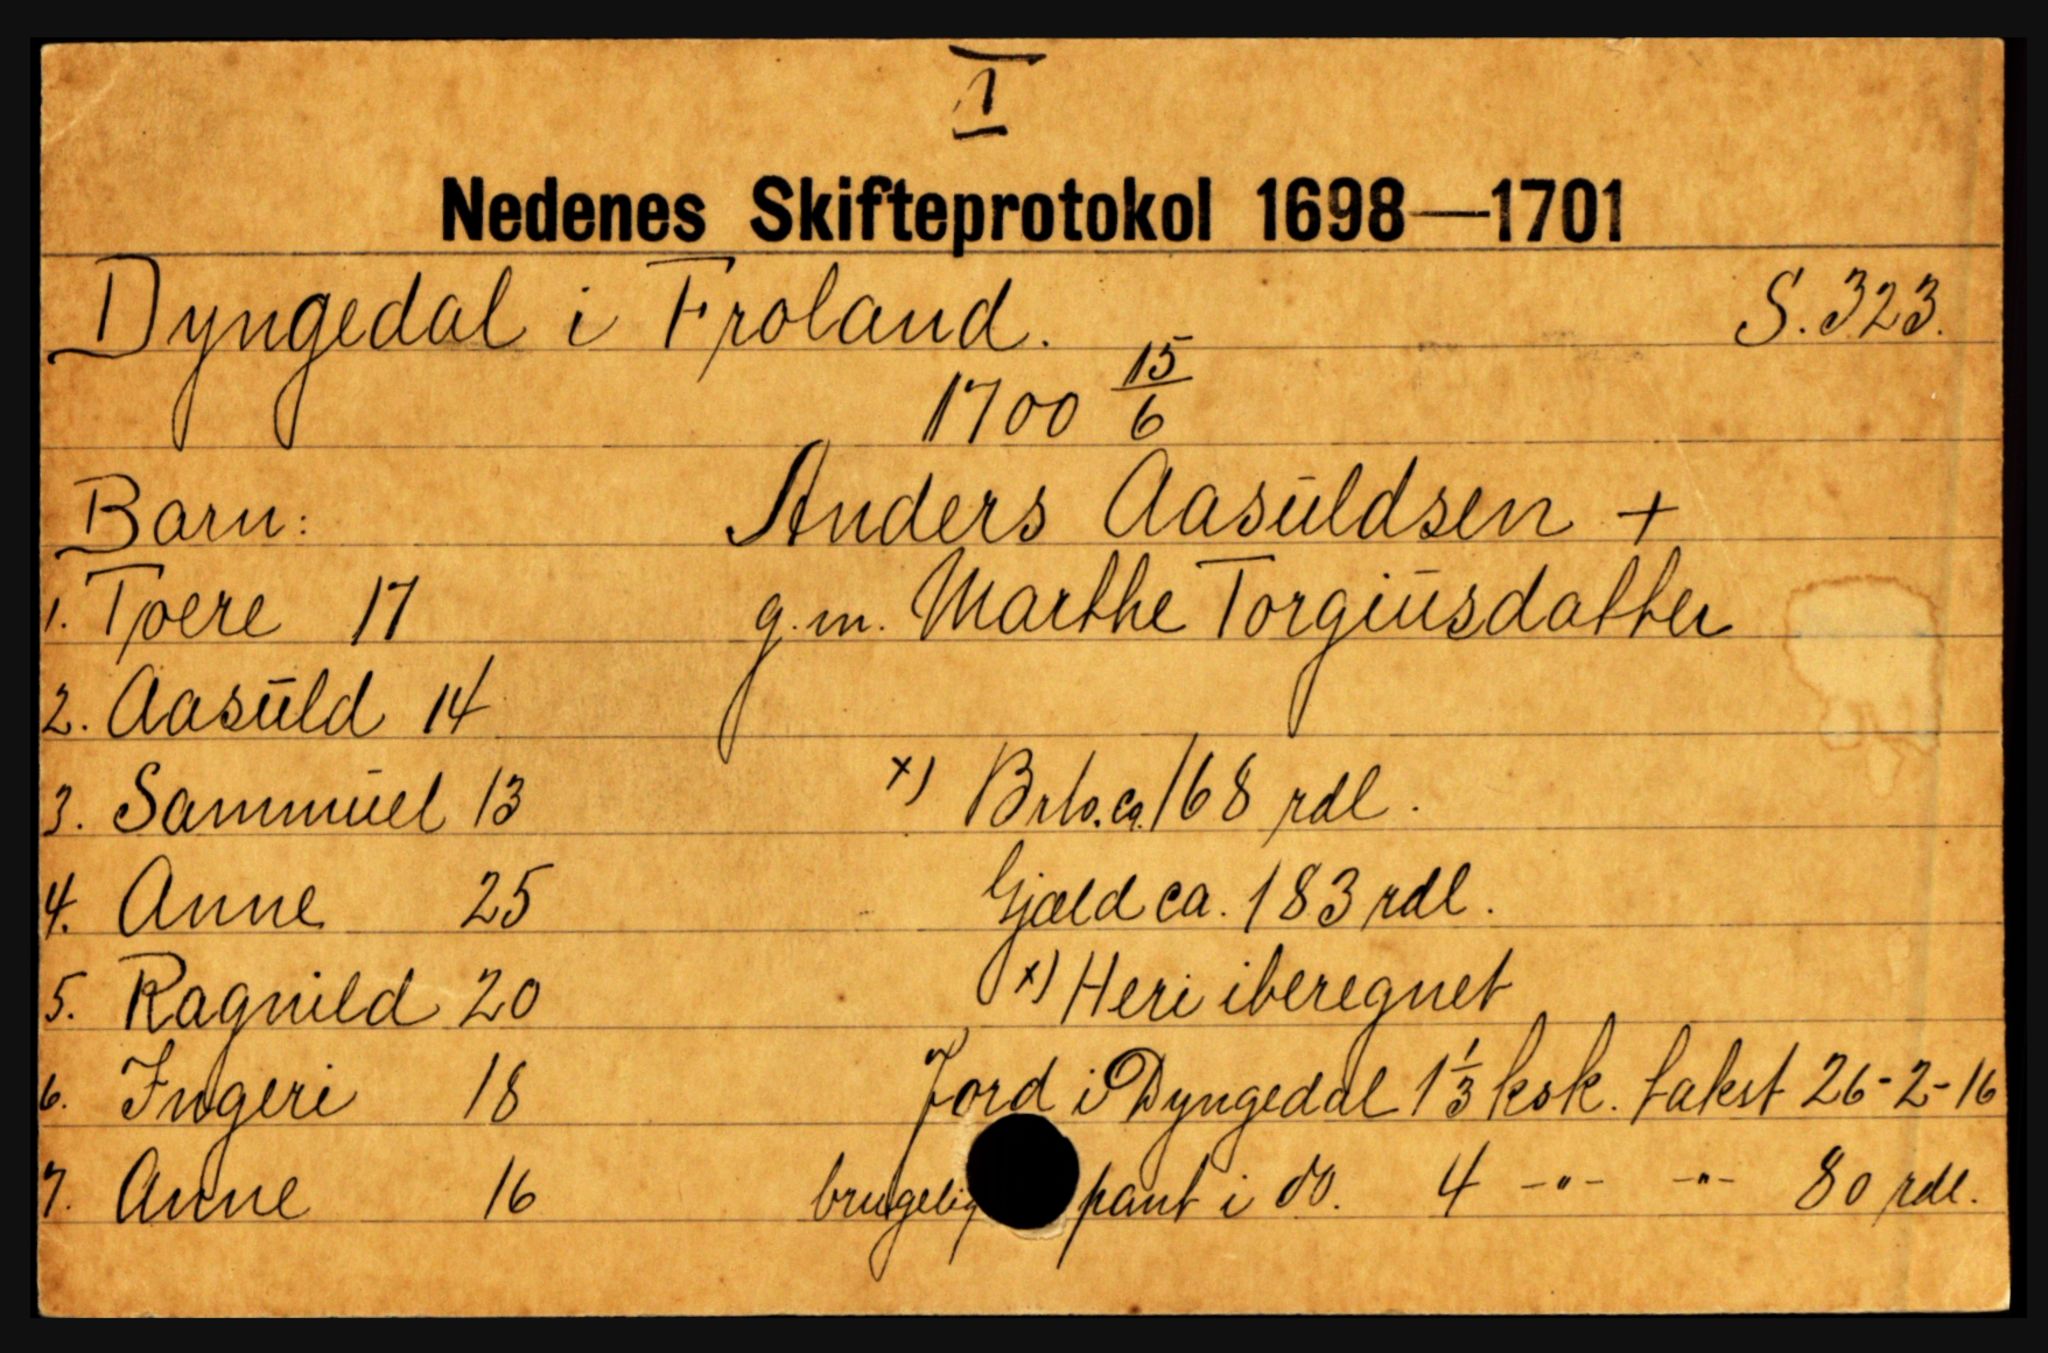 I
Nedenes Skifteprotokol 1698—1701
Dyngedal i Froland. S. 323.
1700 15/6
Barn: Anders Aasŭldsen +
1. Tjoere 17 g. m. Marthe Torgiŭsdatter
2. Aasŭld 14
3. Sammŭel 13 x) Brto. ca. 168 rdl.
4. Anne 25 Gjæld ca. 183 rdl.
5. Ragnild 20 x) Heri iberegnet
6. Ingeri 18 Jord i Dyngedal 1 1/3 ksk. takst 26-2-16
7. Anne 16 brugelig pant i do. 4 -"- -"- 80 rdl.